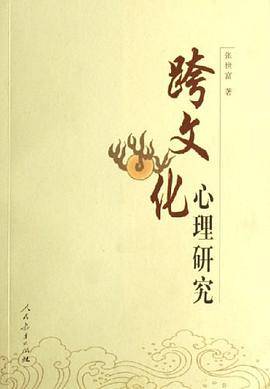 张世富 著
跨文化
心理研究
人民教育出版社